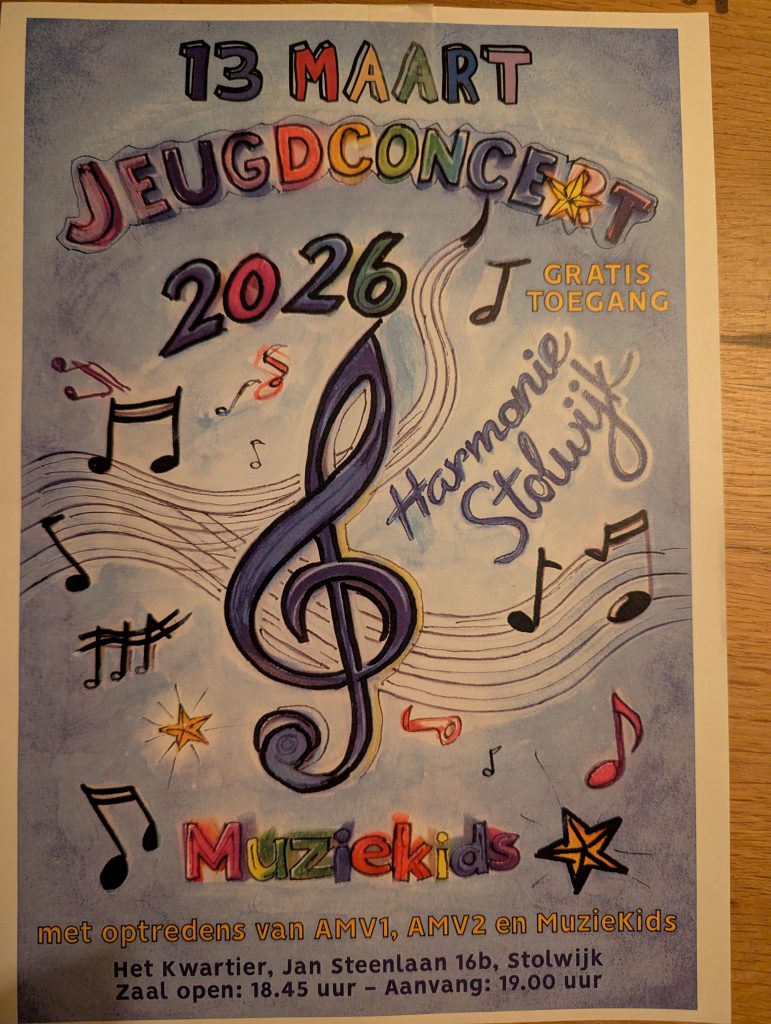 13 MAART
JEUGDCONCERT
2026
GRATIS
TOEGANG
Harmonie
Stolwijk
Muziekids
met optredens van AMV1, AMV2 en MuzieKids
Het Kwartier, Jan Steenlaan 16b, Stolwijk
Zaal open: 18.45 uur – Aanvang: 19.00 uur